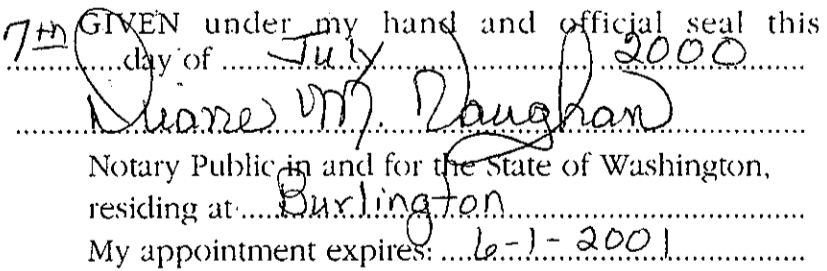 GIVEN under my hand and official seal this
7th day of July 2000
Diane M. Vaughan
Notary Public in and for the State of Washington,
residing at Burlington
My appointment expires: 6-1-2001